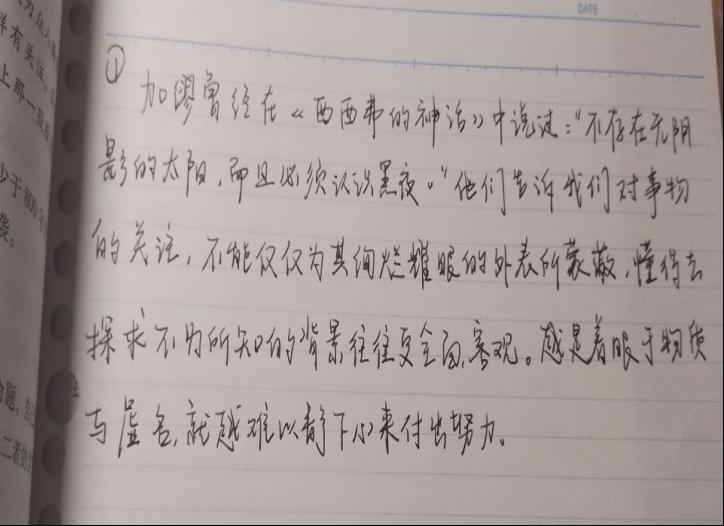 DATE
① 加缪曾经在《西西弗的神话》中说过:"不存在无阴
影的太阳,而且必须认识黑夜。"他们告诉我们对事物
的关注,不能仅仅为其绚烂耀眼的外表所蒙蔽,懂得去
探求不为所知的背景往往更全面、客观。越是着眼于物质
与虚名,就越难以静下心来付出努力。
少于800字